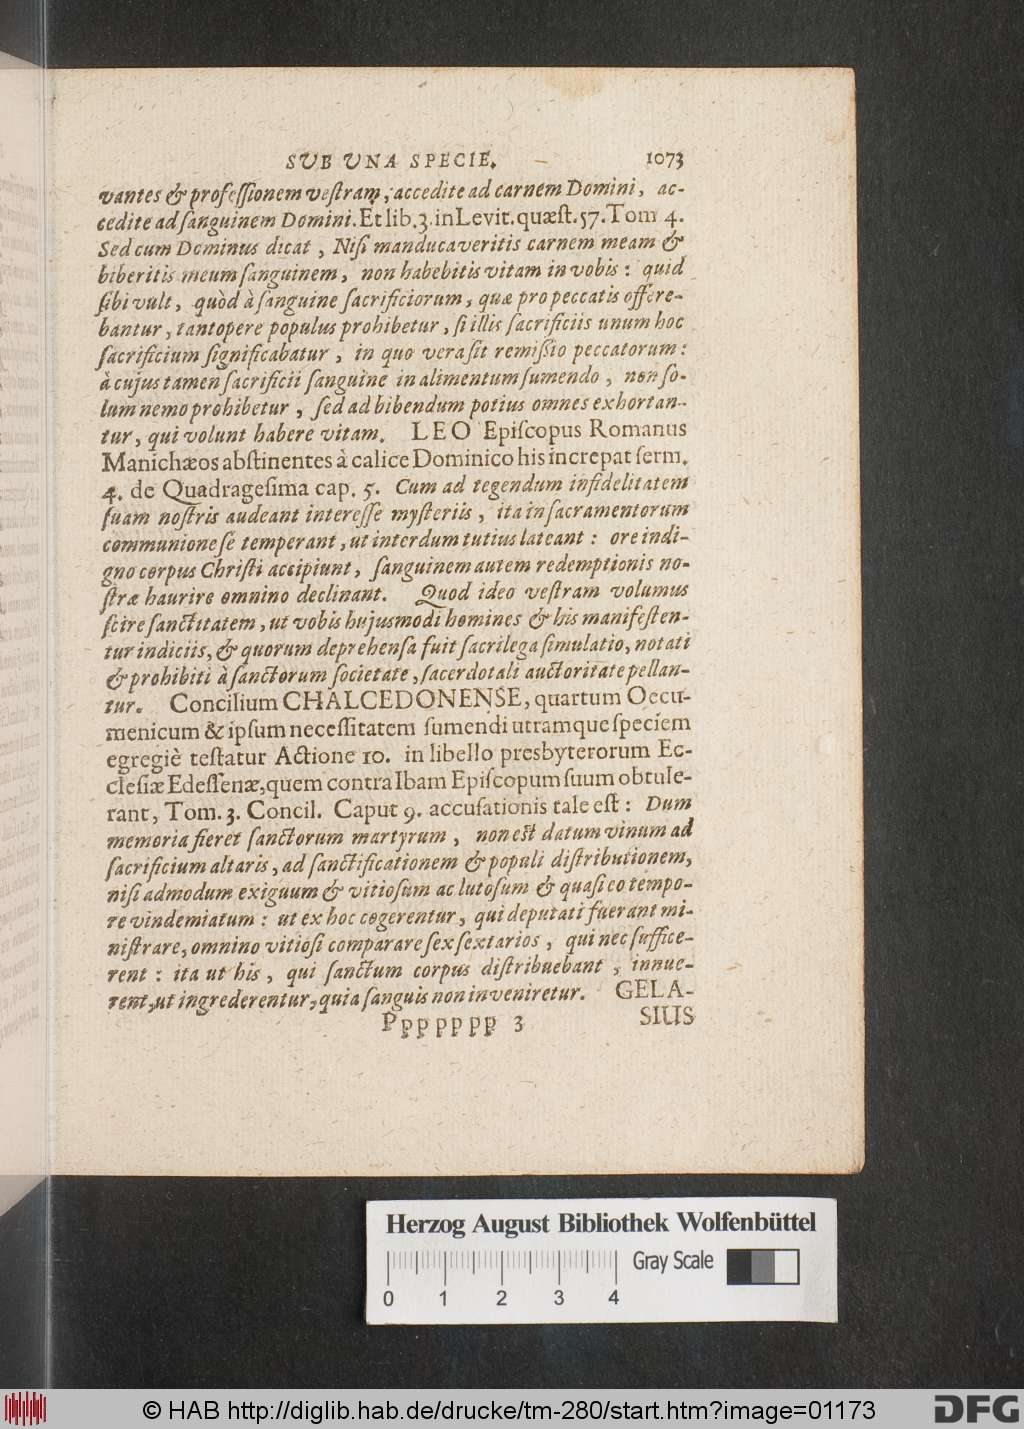 SUB UNA SPECIE. 1073
vantes & profeſſionem veſtram, accedite ad carnem Domini, ac-
cedite ad ſanguinem Domini. Et lib. 3. in Levit. quæſt. 57. Tom 4.
Sed cum Dominus dicat, Niſi manducaveritis carnem meam &
biberitis meum ſanguinem, non habebitis vitam in vobis: quid
ſibi vult, quòd à ſanguine ſacrificiorum, quæ pro peccatis offere-
bantur, tantopere populus prohibetur, ſi illis ſacrificiis unum hoc
ſacrificium ſignificabatur, in quo vera ſit remiſſio peccatorum:
à cujus tamen ſacrificii ſanguine in alimentum ſumendo, non ſo-
lum nemo prohibetur, ſed ad bibendum potius omnes exhortan-
tur, qui volunt habere vitam. LEO Epiſcopus Romanus
Manichæos abſtinentes à calice Dominico his increpat ſerm.
4. de Quadrageſima cap. 5. Cum ad tegendum infidelitatem
ſuam noſtris audeant intereſſe myſteriis, ita in ſacramentorum
communione ſe temperant, ut interdum tutius lateant: ore indi-
gno corpus Chriſti accipiunt, ſanguinem autem redemptionis no-
ſtræ haurire omnino declinant. Quod ideo veſtram volumus
ſcire ſanctitatem, ut vobis hujusmodi homines & his manifeſten-
tur indiciis, & quorum deprehenſa fuit ſacrilega ſimulatio, notati
& prohibiti à ſanctorum ſocietate, ſacerdotali auctoritate pellan-
tur. Concilium CHALCEDONENSE, quartum Oecu-
menicum & ipſum neceſſitatem ſumendi utramque ſpeciem
egregiè teſtatur Actione 10. in libello presbyterorum Ec-
cleſiæ Edeſſenæ, quem contra Ibam Epiſcopum ſuum obtule-
rant, Tom. 3. Concil. Caput 9. accuſationis tale eſt: Dum
memoria fieret ſanctorum martyrum, non eſt datum vinum ad
ſacrificium altaris, ad ſanctificationem & populi diſtributionem,
niſi admodum exiguum & vitioſum ac lutoſum & quaſi eo tempo-
re vindemiatum: ut ex hoc cogerentur, qui deputati fuerant mi-
niſtrare, omnino vitioſi comparare ſex ſextarios, qui nec ſuffice-
rent: ita ut his, qui ſanctum corpus diſtribuebant, innue-
rent, ut ingrederentur, quia ſanguis non inveniretur. GELA-
Ppppppp 3 SIUS
Herzog August Bibliothek Wolfenbüttel
Gray Scale
0 1 2 3 4
© HAB http://diglib.hab.de/drucke/tm-280/start.htm?image=01173
DFG